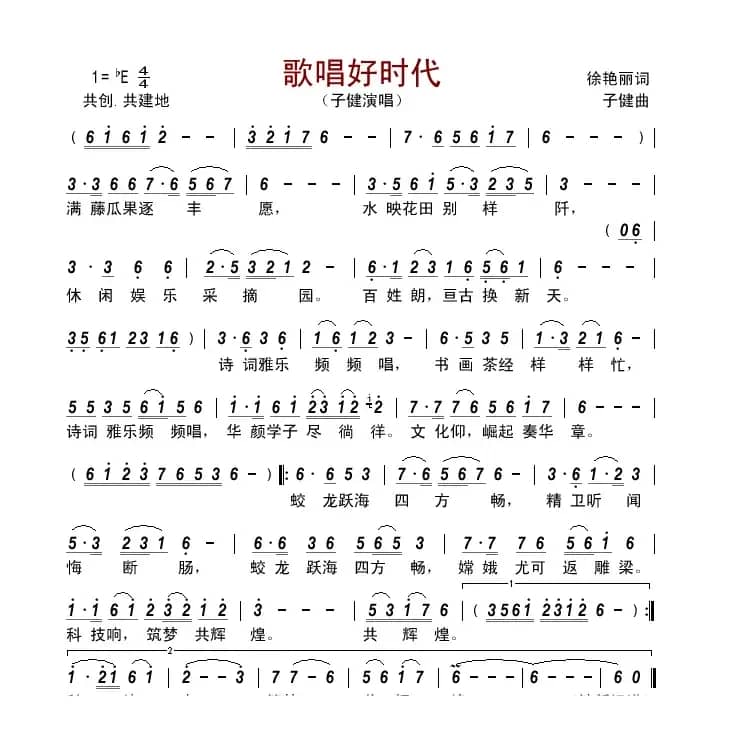 歌唱好时代
1=♭E 4/4
徐艳丽词
共创.共建地
（子健演唱）
子健曲
( 6 1 6 1 2 - - | 3 2 1 7 6 - - | 7· 6 5 6 1 7 | 6 - - - ) |
3·3 6 6 7·6 5 6 7 | 6 - - - | 3·5 6 1 5·3 2 3 5 | 3 - - - |
满 藤瓜果逐 丰 愿， 水 映花田 别 样 阡，
( 0 6 |
3· 3 6 6 | 2·5 3 2 1 2 - | 6·1 2 3 1 6 5 6 1 | 6 - - - |
休 闲 娱 乐 采 摘 园。 百 姓 朗，亘古 换 新 天。
3 5 6 1 2 3 1 6 ) | 3·6 3 6 | 1 6 1 2 3 - | 6·5 3 5 | 1·3 5 6 - |
诗 词雅乐 频 频 唱， 书 画 茶经 样 样 忙，
5 5 3 5 6 1 5 6 | 1·1 6 1 2 3 1 2 2 | 7·7 7 6 5 6 1 7 | 6 - - - |
诗词 雅乐频 频唱，华 颜学子 尽 徜 徉。文 化仰，崛起 奏华 章。
( 6 1 2 3 7 6 5 3 6 - ) |: 3·6 5 3 | 7·6 5 6 7 6 - | 3·6 1·2 3 |
蛟 龙跃海 四 方 畅， 精 卫听 闻
5·3 2 3 1 6 - | 6·6 3 6 5 6 5 3 5 - | 7·7 7 6 5 6 1 6 - |
悔 断 肠， 蛟 龙 跃海 四方 畅，嫦 娥 尤可 返 雕 梁。
1
1·1 6 1 2 3 2 1 2 | 3 - - - | 5 3 1 7 6 - | ( 3 5 6 1 2 3 1 2 6 - ) :|
科 技响，筑梦 共辉 煌。 共 辉 煌。
2